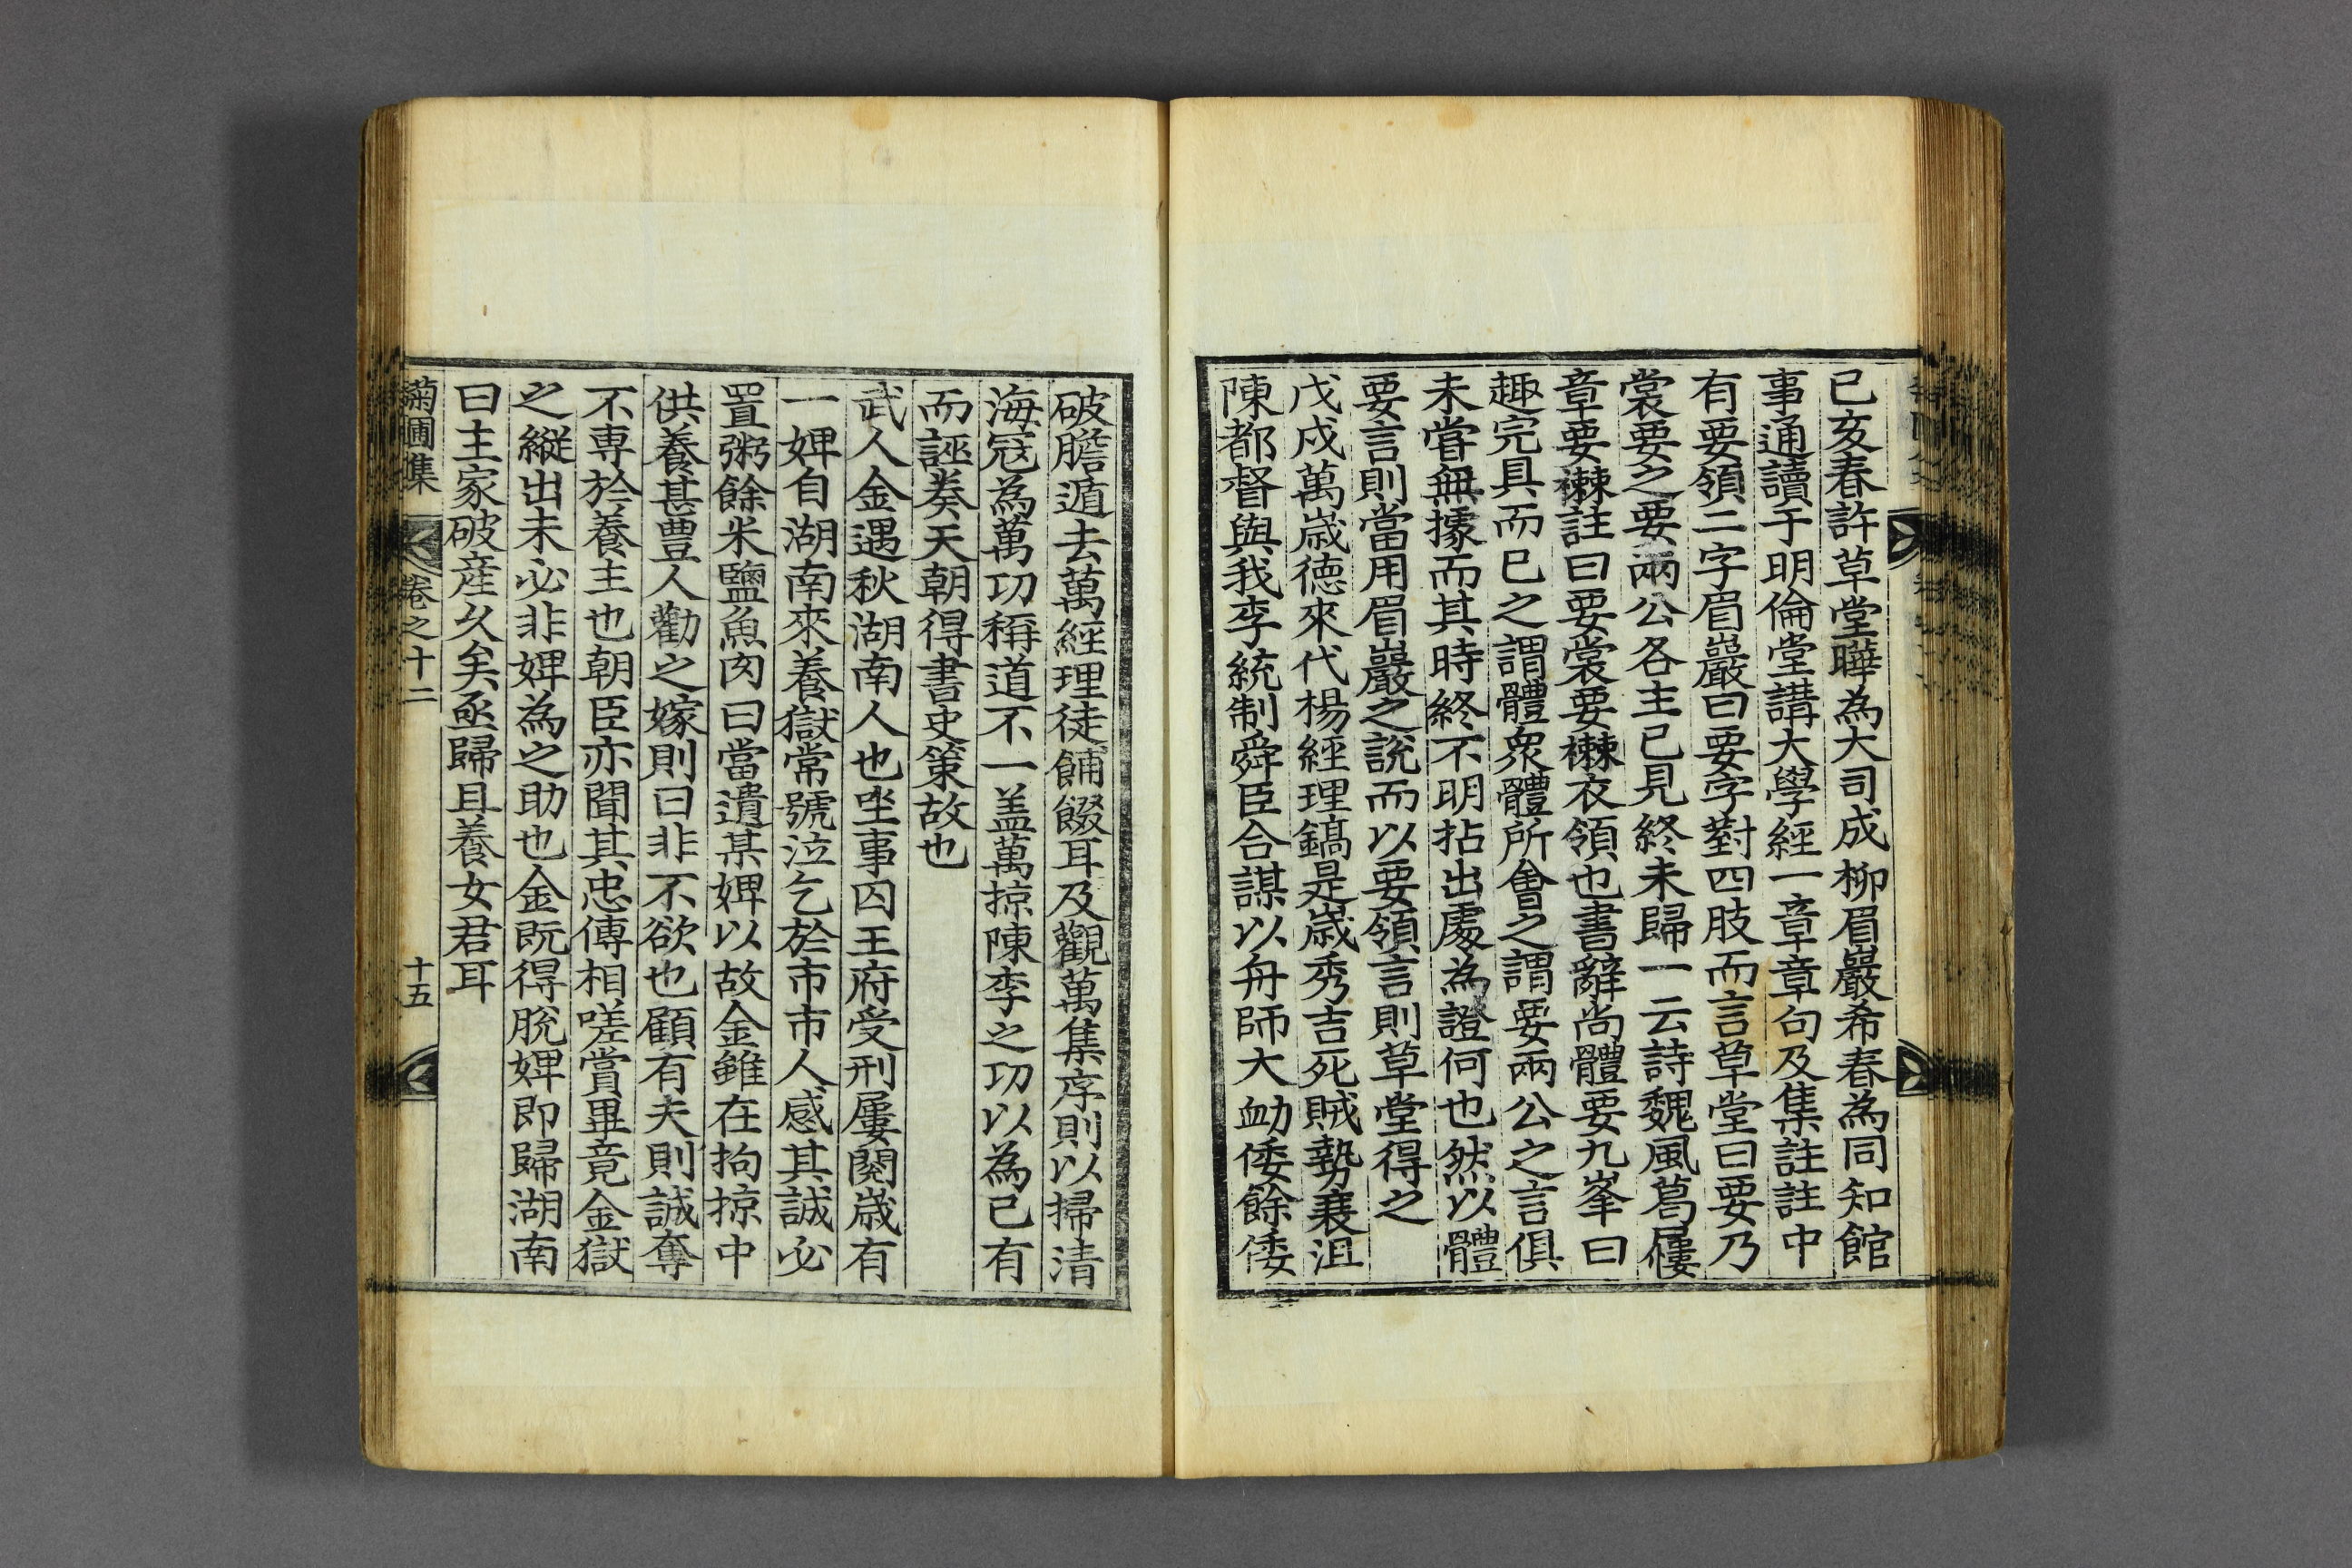 己亥春許草堂曄為大司成柳眉巖希春為同知館
事通讀于明倫堂講大學經一章章句及集註註中
有要領二字眉巖曰要字對四肢而言草堂曰要乃
裳要之要兩公各主己見終未歸一云詩魏風葛屨
章要襋註曰要裳要襋衣領也書辭尚體要九峯曰
趣完具而已之謂體衆體所會之謂要兩公之言俱
未甞無據而其時終不明拈出處為證何也然以體
要言則當用眉巖之說而以要領言則草堂得之
戊戌萬歲德來代楊經理鎬是歲秀吉死賊勢衰沮
陳都督與我李統制舜臣合謀以舟師大衂倭餘倭
破膽遁去萬經理徒餔餟耳及觀萬集序則以掃清
海冦為萬功稱道不一盖萬掠陳李之功以為己有
而誣奏天朝得書史策故也
武人金遇秋湖南人也坐事囚王府受刑屢閱歲有
一婢自湖南來養獄常號泣乞於市市人感其誠必
置粥餘米鹽魚肉曰當遺某婢以故金雖在拘掠中
供養甚豊人勸之嫁則曰非不欲也顧有夫則誠奪
不專於養主也朝臣亦聞其忠傳相嗟賞畢竟金獄
之縱出未必非婢為之助也金旣得脫婢即歸湖南
曰主家破産久矣亟歸且養女君耳
菊圃集 卷之十二 十五